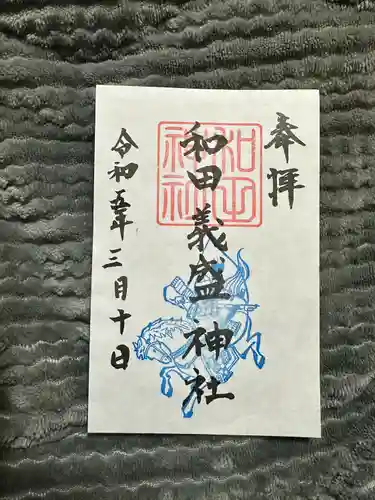 奉拝
和田義盛神社
令和五年三月十日